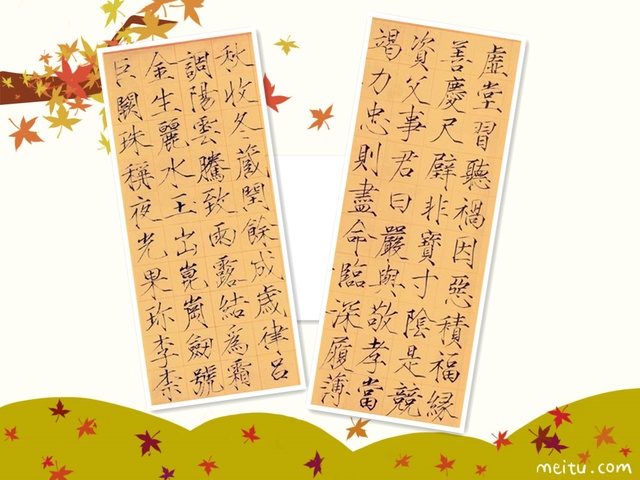 秋收冬蔵閏餘成歲律呂
調陽雲騰致雨露結爲霜
金生麗水玉出崑崗劍號
巨闕珠稱夜光果珍李柰
虛堂習聽禍因惡積福緣
善慶尺璧非寶寸陰是競
資父事君曰嚴與敬孝當
竭力忠則盡命臨深履薄
meitu.com